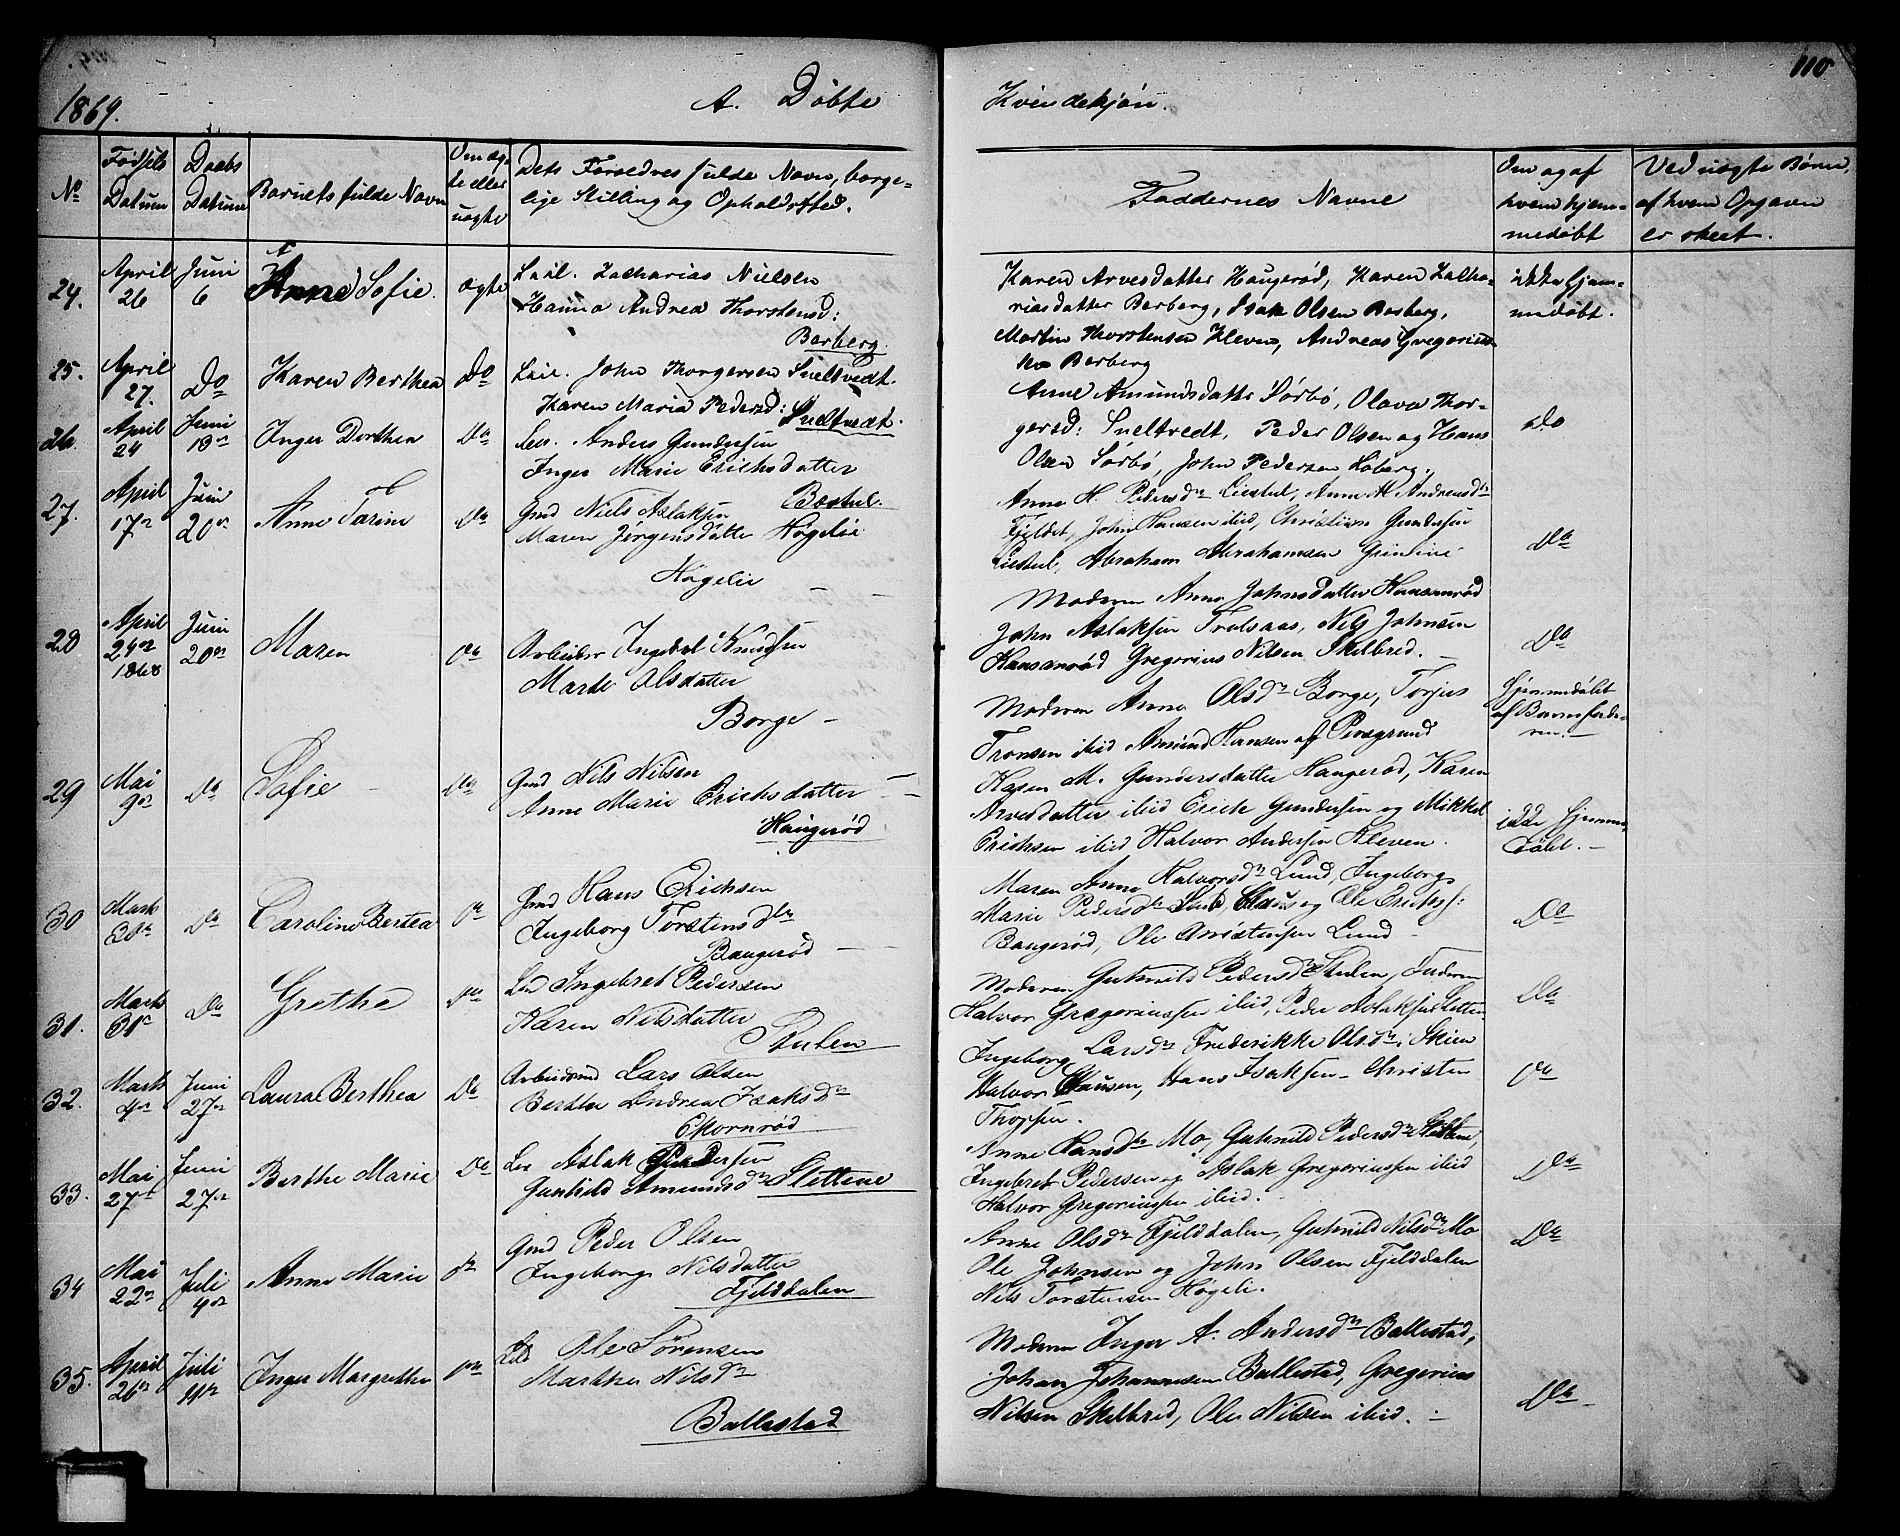 110
1869.
A. Döbte
Kvindekjön.
No
Födsels Datum
Daabs Datum
Barnets fulde Navn
Om ægte eller uægte
Dets Forældres fulde Navn, borgelige Stilling og Opholdssted.
Faddernes Navne
Om og af hvem hjemmedöbt
Ved uægte Börn, af hvem Opgaven er skeet.
24. April 26 Juni 6 Anne Sofie ægte Zacharias Nielsen
Hanna Andrea Thorstensd:
Berberg.
Karen Arvesdatter Haugeröd, Karen Zacha-
riasdatter Berberg, Isak Olsen Berberg,
Martin Thorstensen Kleven, Andreas Gregorius-
Berberg
ikke hjem-
medöbt.
25. April 27. Do Karen Berthea Do John Thorgersen Sneltvedt.
Karen Maria Pedersd: Sneltvedt.
Anne Amundsdatter Sörbö, Olava Thor-
gersd: Sneltvedt, Peder Olsen og Hans
Olsen Sörbö, John Pedersen Loberg.
Do
26. April 24 Juni 13 Inger Dorthea Do Anders Gundersen
Inger Marie Erichsdatter
Bœstul.
Anne H. Pedersdr Liestul, Anne M Andreasdr
Fjeldet, John Hansen ibid, Christian Gundersen
Liestul, Abraham Abrahamsen
Do
27. April 17de Juni 20de Anne Tarine Do Gmd Niels Aslaksen
Maren Jörgensdatter Högelie
Högelie
Moderen Anne Johnsdatter Hansemröd
John Aslaksen Trulsaas, Nils Johnsen
Hansemröd Gregorius Nilsen Skilbred.
Do
28 April 24de 1868 Juni 20de Maren Do Arbeider Ingebret Knudsen
Marte Olsdatter
Borge
Moderen Anne Olsdr Borge, Torjus
Tronsen ibid Amund Hansen af Porsgrund
Hjemmedöbt
af Barnefade-
ren.
29 Mai 9de Do Sofie Do Gmd Nils Nilsen
Anne Marie Erichsdatter
Haugeröd
Karen M. Gundersdatter Haugeröd, Karen
Arvesdatter ibid Erich Gundersen og Mikkel
Erichsen ibid Halvor Andersen Kleven.
ikke hjemme-
döbt.
30 Marts 30te Do Caroline Bertea Do Gmd Hans Erichsen
Ingeborg Torstensdtr
Baugeröd
Maren Anne Halvorsdr Lund, Ingeborg
Marie Pedersdtr Lund, Claus og Ole Erikss:
Baugeröd, Ole Christensen Lund
Do
31. Marts 31te Do Grethe Do Ingebret Pedersen
Karen Nilsdatter
Stulen
Moderen Guhnild Pedersdr Stulen, Faderen
Halvor Gregoriussen ibid, Peder Aslaksen Sletten
Do
32. Marts 4de Juni 27de Laura Berthea Do Arbeidsmd Lars Olsen
Berthe Andrea Isaksdr
Ekornröd
Ingeborg Larsdr Frederikke Olsdr, Skien
Halvor Clausen, Hans Isaksen - Christen
Thorsen.
Do
33. Mai 27de Juni 27de Berthe Marie Do Aslak Pedersen
Gunhild Amundsdr Slettene
Anne Hansdtr Mo, Guhnild Pedersdr Slettene,
Ingebret Pedersen og Aslak Gregoriussen ibid
Halvor Gregoriussen ibid.
Do
34 Mai 22de Juli 4de Anne Marie Do Gmd Peder Olsen
Ingeborg Nilsdatter
Fjelddalen
Anne Olsdr Fjelddalen, Guhnild Nilsdr Mo
Ole Johnsen og John Olsen Fjelddalen
Nils Torstensen Högeli.
Do
35. April 26de Juli 11te Inger Margrethe Do Ole Sörensen
Marthe Nilsdr
Ballestad
Moderen Inger A. Andersdr Ballestad,
Johan Johannesen Ballestad, Gregorius
Nilsen Skilbred, Ole Nilsen ibid.
Do